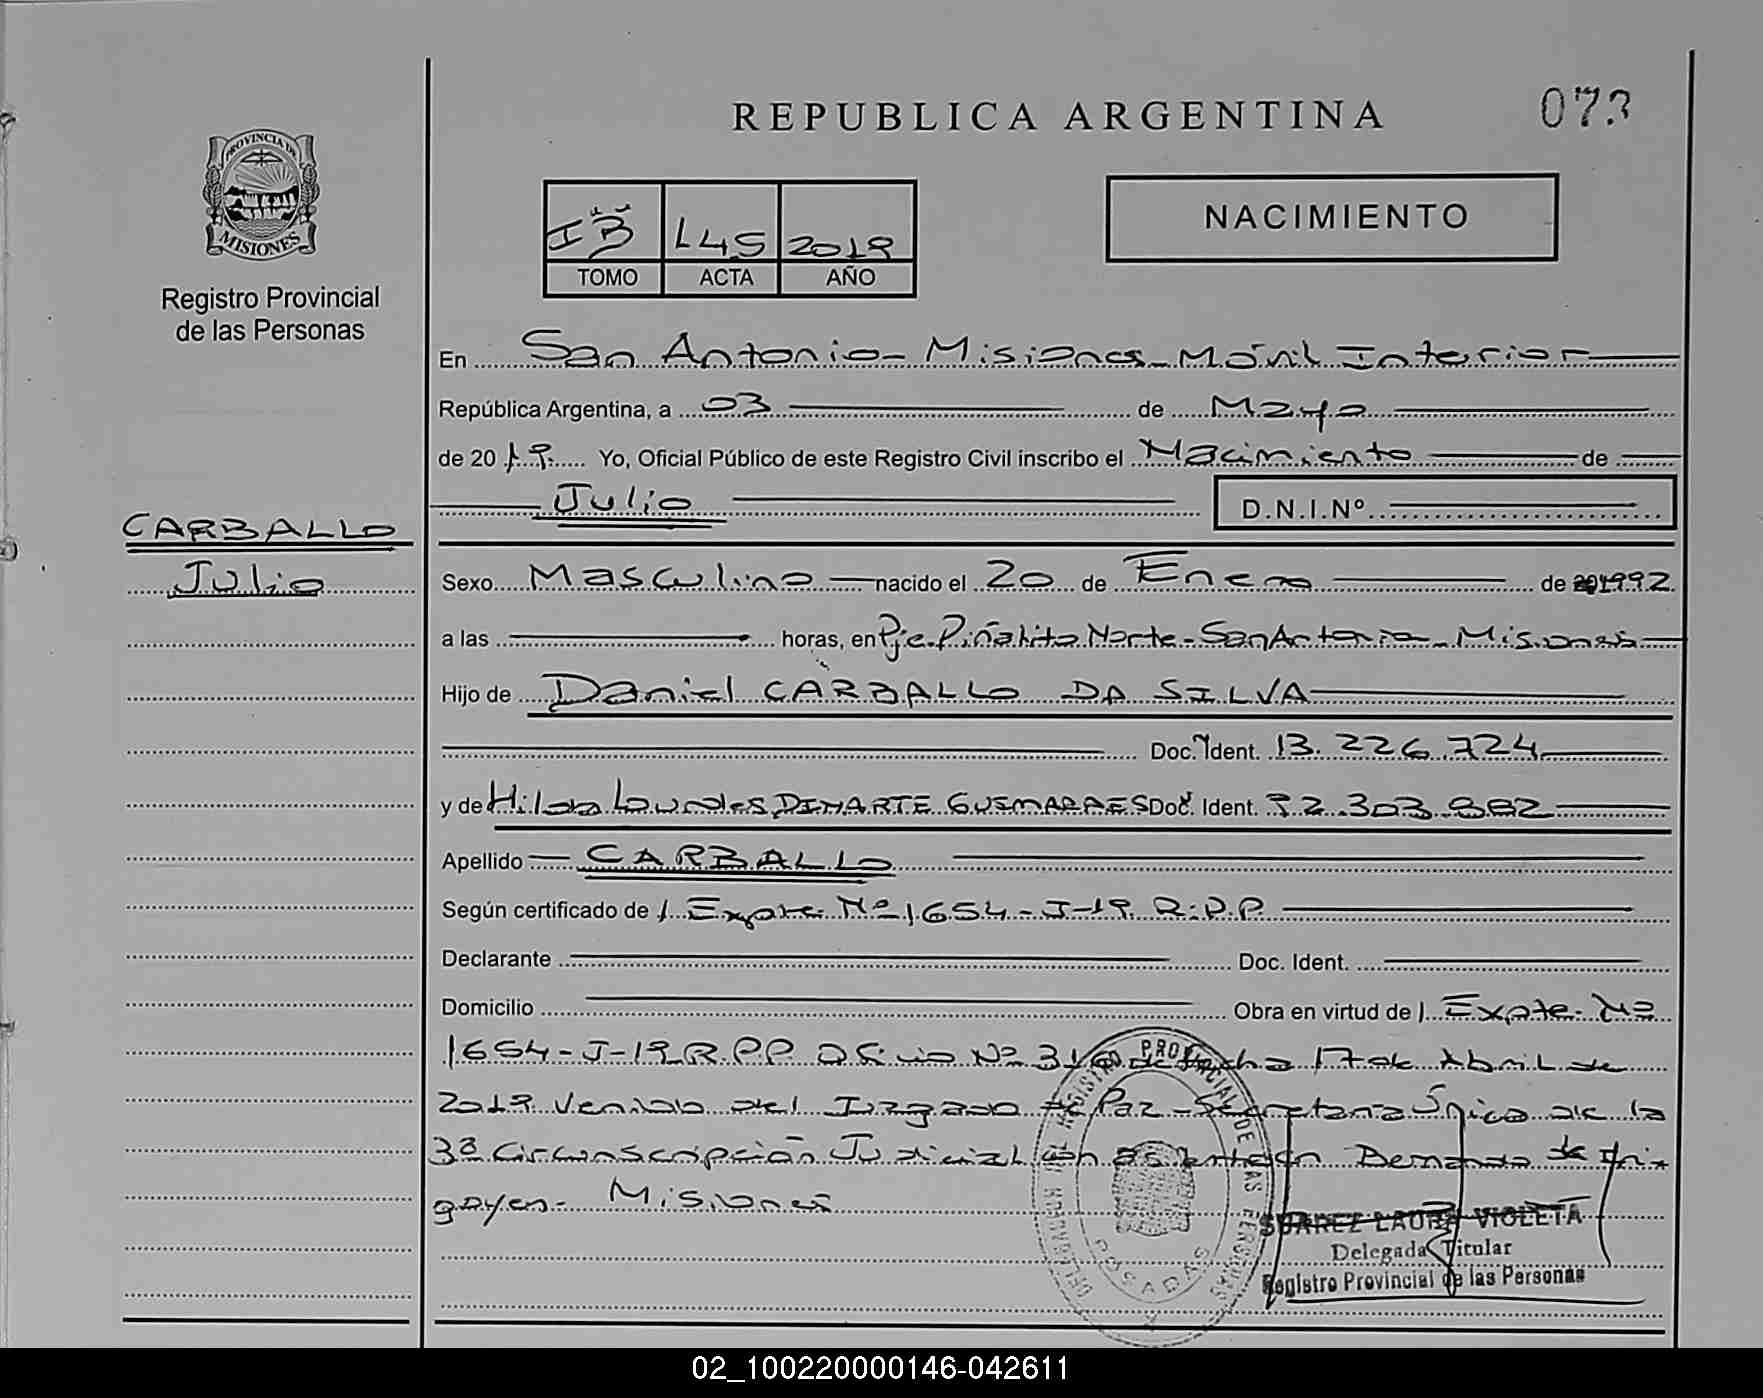 REPUBLICA ARGENTINA
073
PROVINCIA DE
MISIONES
Registro Provincial
de las Personas
I "B" L45 2019
TOMO ACTA AÑO
NACIMIENTO
En San Antonio - Misiones - Móvil Interior
República Argentina, a 03 de Mayo
de 2019. Yo, Oficial Público de este Registro Civil inscribo el Nacimiento de
Julio D.N.I.Nº
CARBALLO
Julio
Sexo Masculino nacido el 20 de Enero de 1992
a las horas, en Pje. Piñalito Norte - San Antonio - Misiones
Hijo de Daniel CARBALLO DA SILVA
Doc. Ident. 13.226.724
y de Hilda Lourdes DINARTE GUSMARAES Doc. Ident. 92.303.882
Apellido CARBALLO
Según certificado de / Expte. Nº 1654-J-19 R.P.P.
Declarante Doc. Ident.
Domicilio Obra en virtud de / Expte. Nº
1654-J-19 R.P.P. Oficio Nº de fecha 17 de Abril de
2019 venido del Juzgado de Paz - Secretaria Única de la
3ª Circunscripción Judicial con asiento en Bernardo de Iri-
goyen - Misiones
REGISTRO PROVINCIAL DE LAS PERSONAS
POSADAS
SUAREZ LAURA VIOLETA
Delegada Titular
Registro Provincial de las Personas
02_100220000146-042611